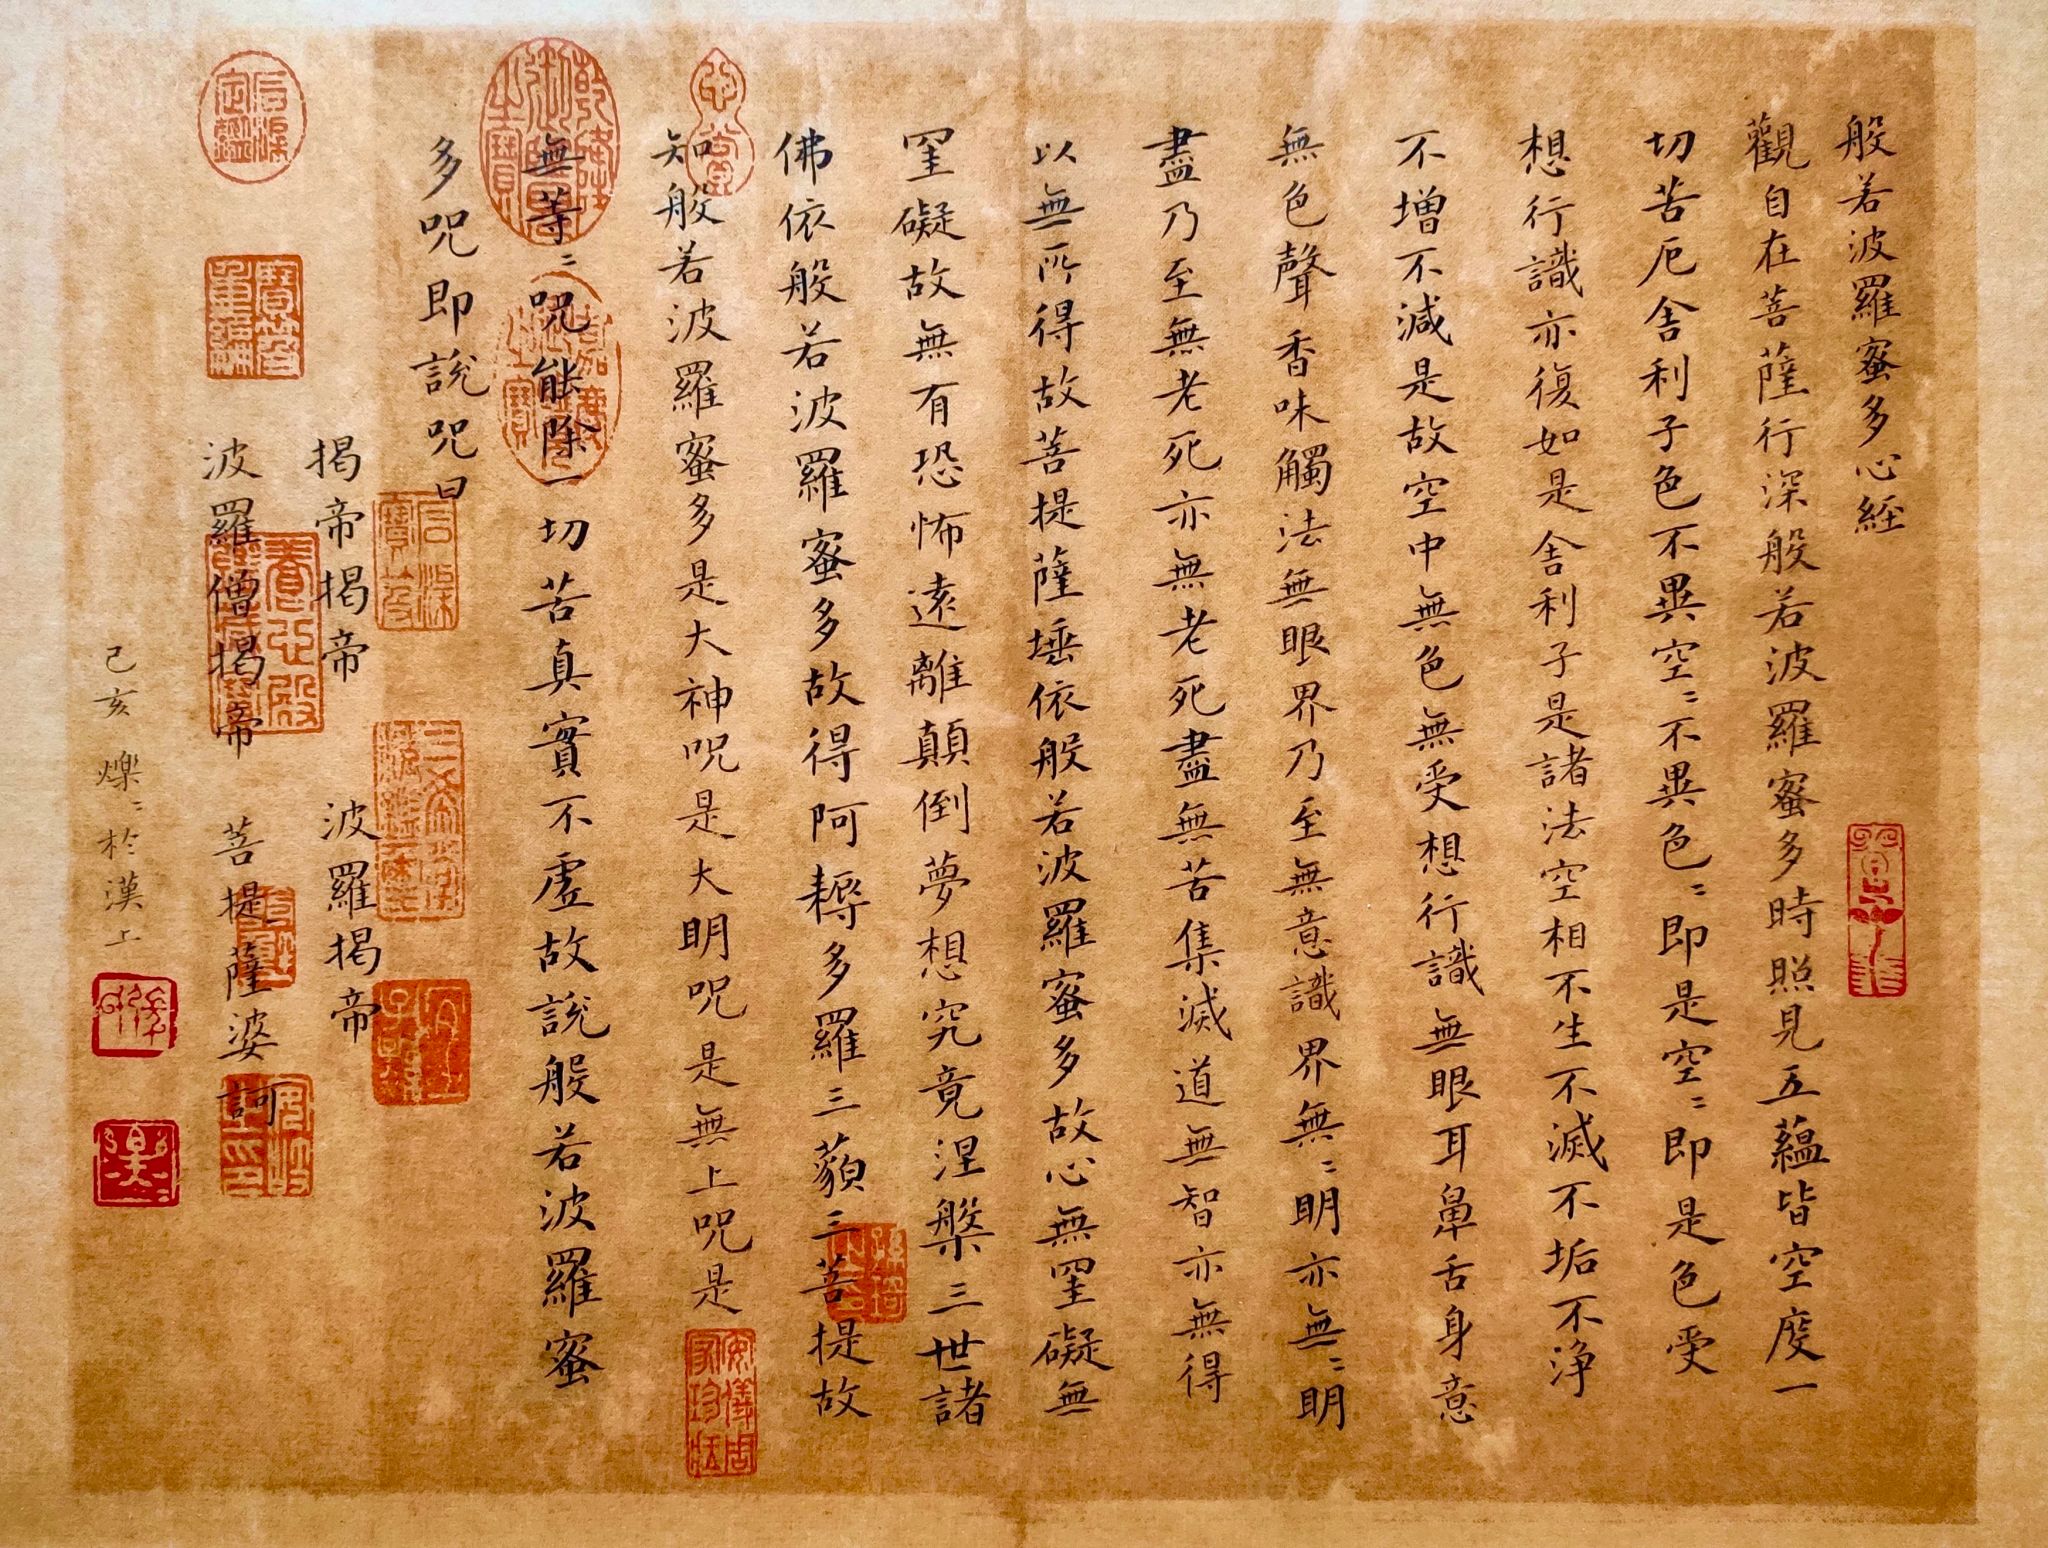 般若波羅蜜多心経
觀自在菩薩行深般若波羅蜜多時照見五蘊皆空度一
切苦厄舍利子色不異空〻不異色〻即是空〻即是色受
想行識亦復如是舍利子是諸法空相不生不滅不垢不淨
不增不減是故空中無色無受想行識無眼耳鼻舌身意
無色聲香味觸法無眼界乃至無意識界無〻明亦無〻明
盡乃至無老死亦無老死盡無苦集滅道無智亦無得
以無所得故菩提薩埵依般若波羅蜜多故心無罣礙無
罣礙故無有恐怖遠離顛倒夢想究竟涅槃三世諸
佛依般若波羅蜜多故得阿耨多羅三藐三菩提故
知般若波羅蜜多是大神咒是大明咒是無上咒是
無等〻咒能除一切苦真實不虛故說般若波羅蜜
多咒即說咒曰
揭帝揭帝 波羅揭帝
波羅僧揭帝 菩提薩婆訶
己亥 爍〻於漢上
安儀周家珍藏
乾隆御覽之寶
嘉慶御覽之寶
石渠寶笈
三希堂精鑑璽
宜子孫
石渠定鑑
寶笈重編